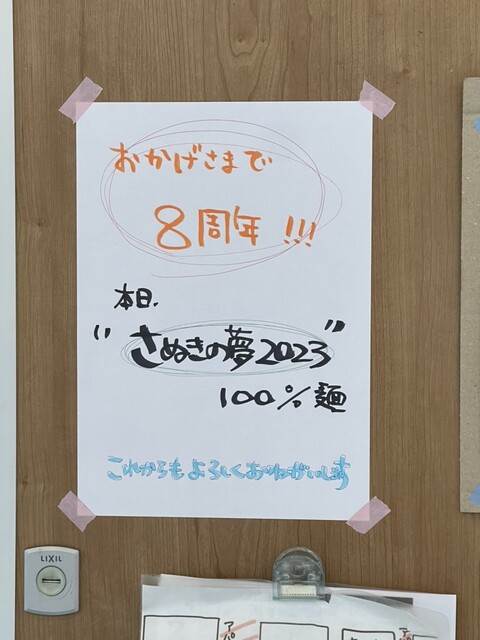 おかげさまで
8周年!!!
本日.
"さぬきの夢2023"
100%麺
これからもよろしくおねがいします
LIXIL